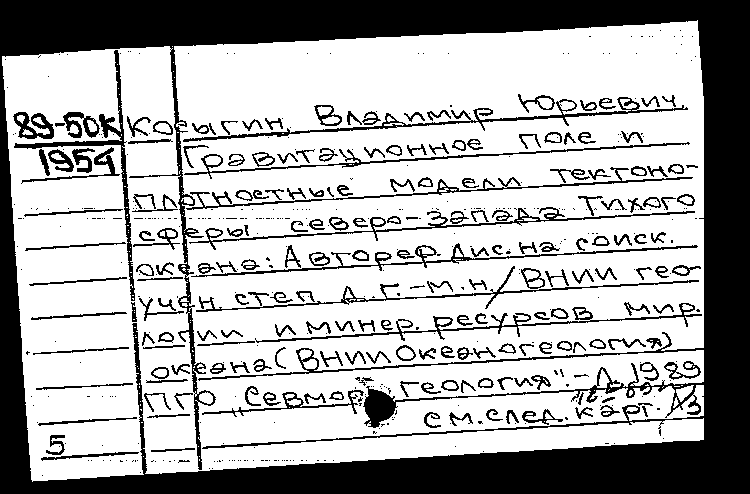 89-50К Косыгин, Владимир Юрьевич.
1954 Гравитационное поле и
плотностные модели тектоно-
сферы северо-запада Тихого
океана: Автореф. дис. на соиск.
учен. степ. д. г.-м.н. / ВНИИ гео-
логии и минер. ресурсов мир.
океана (ВНИИОкеангеология)
ПГО „Севморгеология". - Л, 1989
см. след. карт.
5